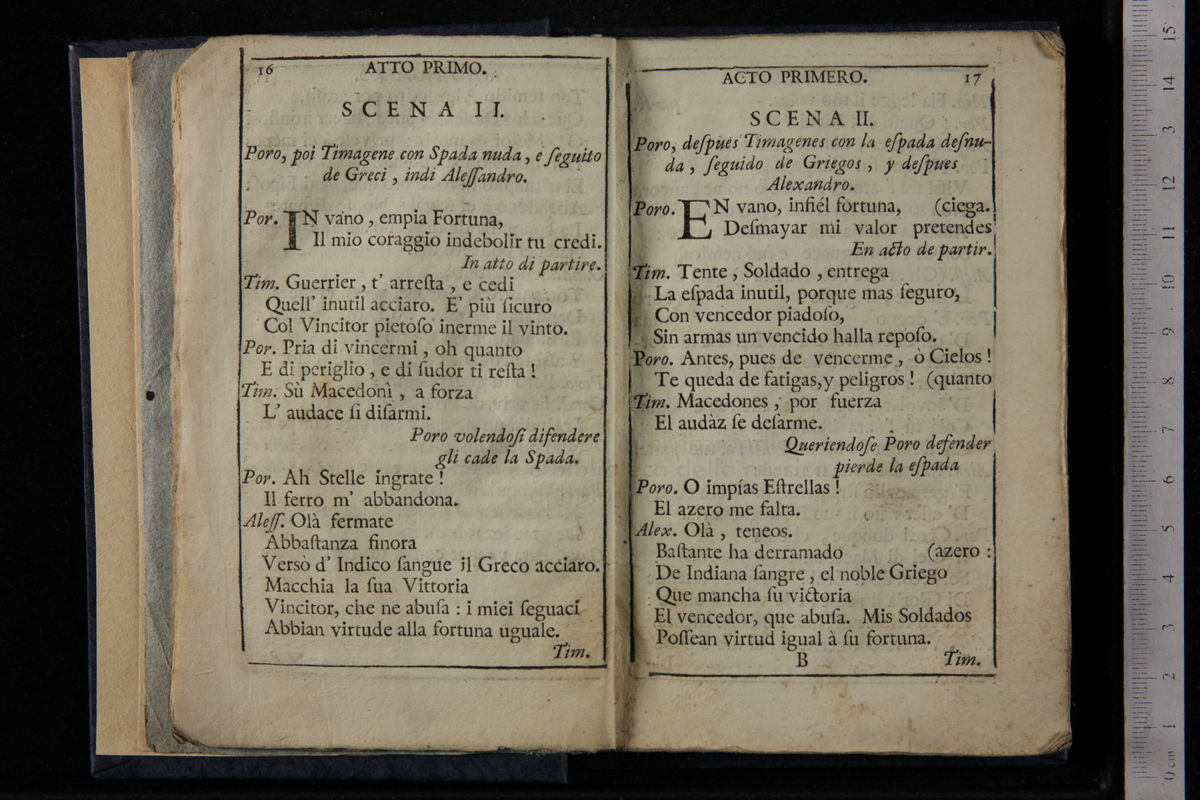 16 ATTO PRIMO.
SCENA II.
Poro, poi Timagene con Spada nuda, e ſeguito
de Greci, indi Aleſſandro.
Por. IN vano, empia Fortuna,
Il mio coraggio indebolir tu credi.
In atto di partire.
Tim. Guerrier, t' arreſta, e cedi
Quell' inutil acciaro. E' più ſicuro
Col Vincitor pietoſo inerme il vinto.
Por. Pria di vincermi, oh quanto
E di periglio, e di ſudor ti reſta!
Tim. Sù Macedonì, a forza
L' audace ſi diſarmi.
Poro volendoſi difendere
gli cade la Spada.
Por. Ah Stelle ingrate!
Il ferro m' abbandona.
Aleſſ. Olà fermate
Abbaſtanza finora
Versò d' Indico ſangue il Greco acciaro.
Macchia la ſua Vittoria
Vincitor, che ne abuſa: i miei ſeguaci
Abbian virtude alla fortuna uguale.
Tim.
ACTO PRIMERO. 17
SCENA II.
Poro, deſpues Timagenes con la eſpada deſnu-
da, ſeguido de Griegos, y deſpues
Alexandro.
Poro. EN vano, infiél fortuna, (ciega.
Deſmayar mi valor pretendes
En acto de partir.
Tim. Tente, Soldado, entrega
La eſpada inutil, porque mas ſeguro,
Con vencedor piadoſo,
Sin armas un vencido halla repoſo.
Poro. Antes, pues de vencerme, ò Cielos!
Te queda de fatigas, y peligros! (quanto
Tim. Macedones, por fuerza
El audàz ſe deſarme.
Queriendoſe Poro defender
pierde la eſpada
Poro. O impías Eſtrellas!
El azero me falta.
Alex. Olà, teneos.
Baſtante ha derramado (azero:
De Indiana ſangre, el noble Griego
Que mancha ſu victoria
El vencedor, que abuſa. Mis Soldados
Poſſean virtud igual à ſu fortuna.
B Tim.
0 cm 1 2 3 4 5 6 7 8 9 10 11 12 13 14 15